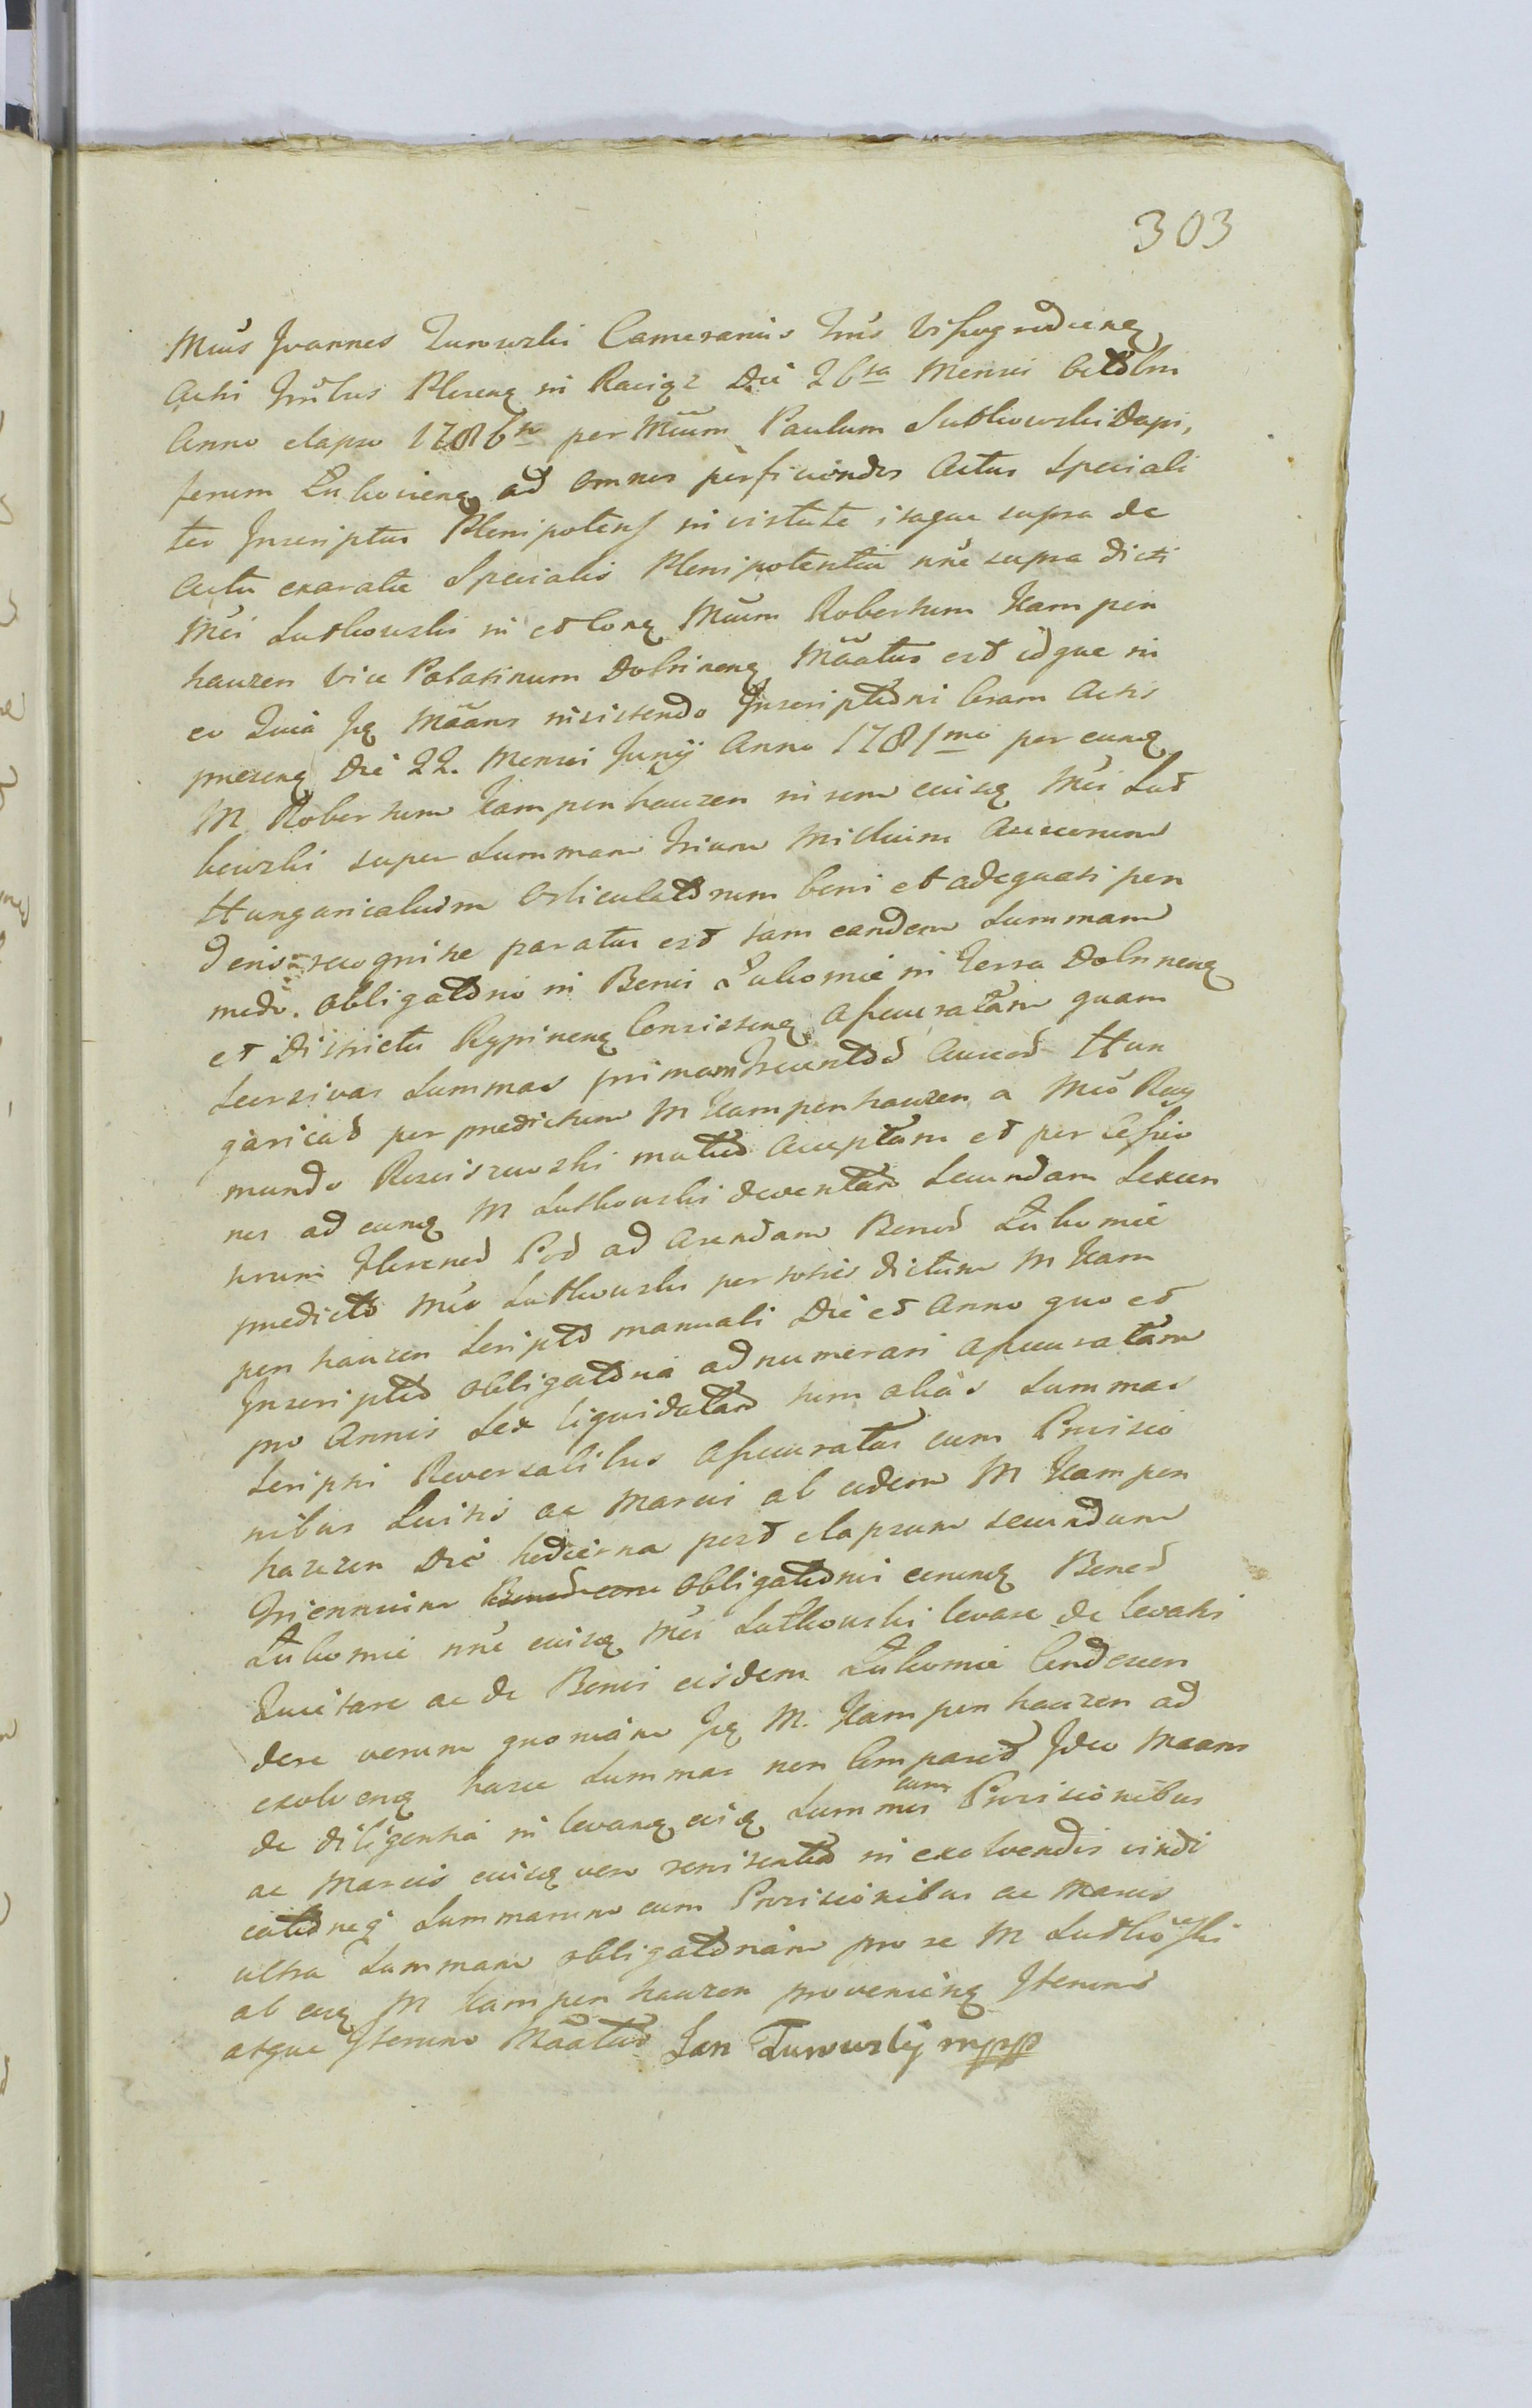 303
Mcus Joannes Turowski Camerarius Trrus Viszogrodieng
Actis Trribus Plocieng in Raciąz Die 26ta Mensis Octobris
Anno elapso 1786to per Mcum Paulum Lutkowski Dapi,
ferum Lukovieng ad omnes perficiendos Actus speciali
ter Inscriptus Plenipotens in virtute isague supra de
Actu exaratæ Specialis Plenipotentiæ nne supra dicti
Mci Lutkowski in et cong Mcum Robertum Kampen
hauzen Vice Palatinum Dobrineng Mãatus est idque in
eo Quia Ip Mãans insistendo Inscriptõni Coram Actis
præseng Die 22. Mensis Junÿ Anno 1781mo per eung
M Robertum Kampenhauzen in rem eiusg Mci Lut
kowski super Summam trium Millium Aureorum
Hungaricalium Orliculatõrum boni et adequati pon
deris recognitæ paratus est tam eandem Summam
modo obligatõrio in Bonis Lukomie in Terra Dobrineng
et Districtu Rypineng Consisteng assecuratam quam
Scorsivas Summas primam Trecentõd Aureod Hun
garicad per prædictum M Kampenhauzen a Mco Ray
mundo Rosciszewski mutuõ Acceptam et per cessio
nes ad eung M Lutkowski deventam Secundam Sexcen
torum Florenod Pod ad Arendam Bonod Lukomie
prædictõ Mco Lutkowski per toties dictum M Kam
pen hauzen Scriptõ manuali Die et Anno quo et
Inscriptiõ obligatõria adnumerari assecuratam
pro Annis Sex liquidatam tum alias Summas
Scripti Reversalibus assecuratas cum Provisio
nibus Luitis ac Marcis ab eodem M Kampen
hauzen Die hodierna post elapsum secundum
Triennium obligatõrii eorung Bonod
Lukomie nne eiusg Mci Lutkowski levare de levatis
Quietare ac de Bonis eisdem Lukomie Condescen
dere verum quoniam Ip M. Kampen hauzen ad
exolveng hasce Summas non Comparuit Ideo Maans
de diligentia in levang eisg Summis cum Provisionibus
ac Marcis eiusg vero renitentiõ in exolvendis vindi
catiõneg Summarum cum Provisionibus ac Marcis
ultra Summam obligatõriam pro se M Lutkowski
ab eog M Kampen hauzen provenieng Iterum
atque Iterum Mãatus Jan Turowskÿ mpp